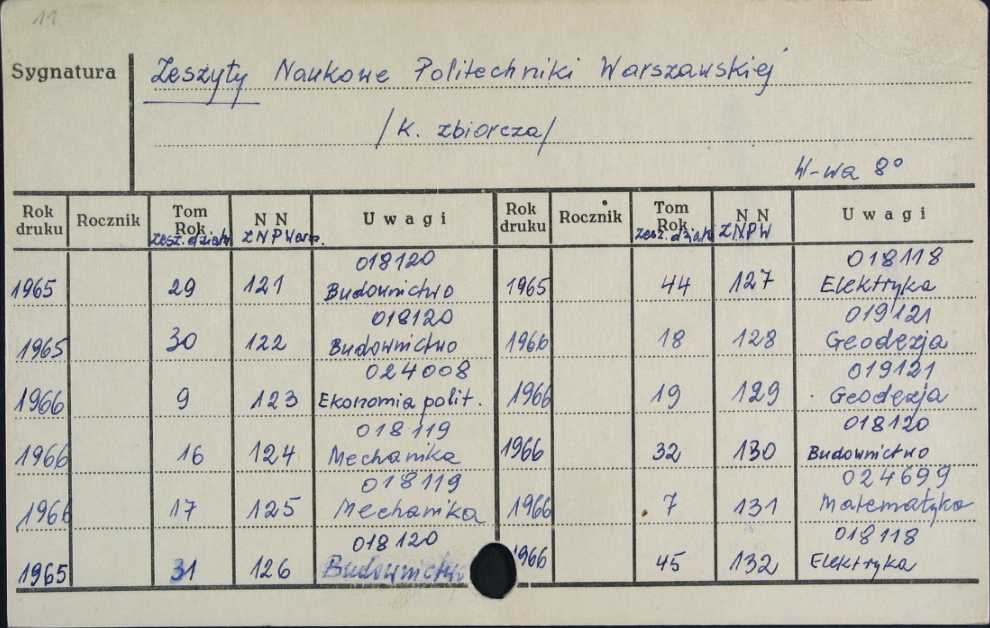 11
Sygnatura Zeszyty Naukowe Politechniki Warszawskiej
/K. zbiorcza/
W-wa 8°
Rok druku Rocznik Tom Rok N N Uwagi Rok druku Rocznik Tom Rok N N Uwagi
Zesz. działu ZNPWarsz. Zesz. działu ZNPW
018120 018118
1965 29 121 Budownictwo 1965 44 127 Elektryka
018120 019121
1965 30 122 Budownictwo 1966 18 128 Geodezja
024008 019121
1966 9 123 Ekonomia polit. 1966 19 129 Geodezja
018119 018120
1966 16 124 Mechanika 1966 32 130 Budownictwo
018119 024699
1966 17 125 Mechanika 1966 7 131 Matematyka
018120 018118
1965 31 126 Budownictwo 1966 45 132 Elektryka